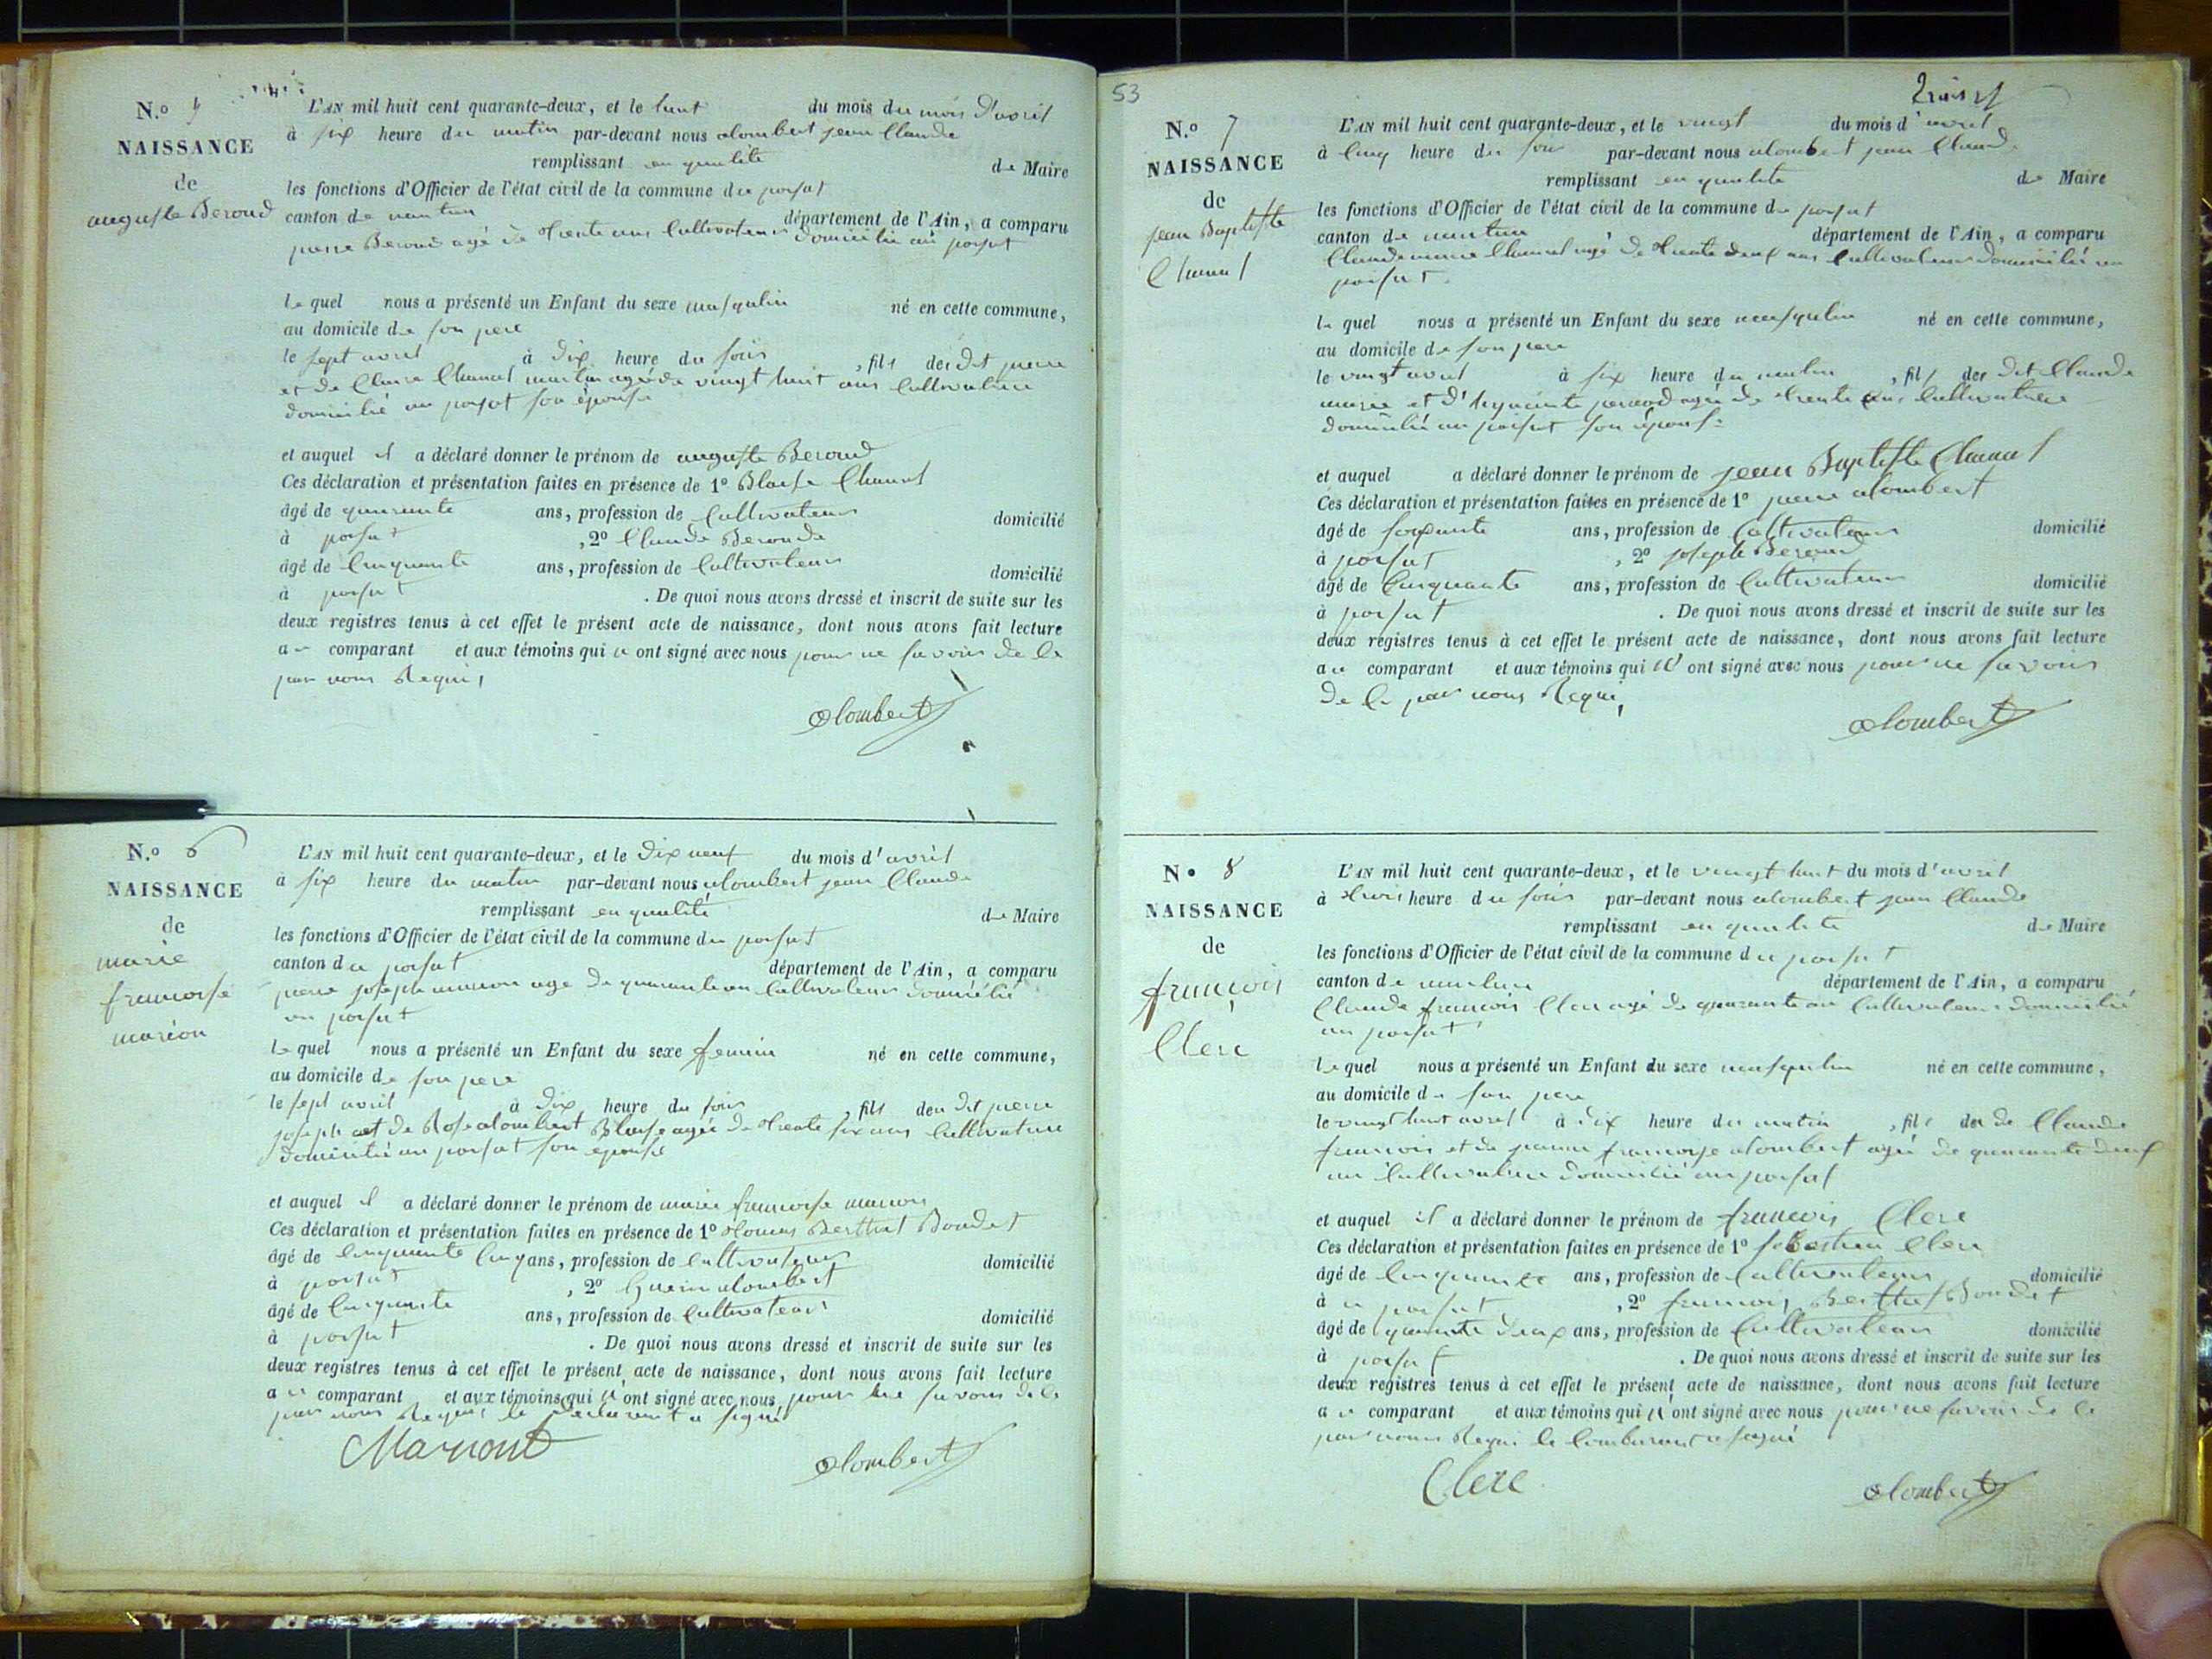 N.o 5
NAISSANCE
de
auguste Beroud
L'AN mil huit cent quarante-deux, et le huit du mois du mois d'avril
à six heure du matin par-devant nous alombert jean Claude
remplissant en qualité de Maire
les fonctions d'Officier de l'état civil de la commune du
canton de nantua département de l'Ain, a comparu
Beroud agé de trente ans Cultivateur domicilié au
le quel nous a présenté un Enfant du sexe masqulin né en cette commune,
au domicile de son pere
le sept avril à dix heure du soir , fils du dit pierre
et de Claire Chanel agée de vingt huit ans Cultivatrice
domicilié au son épouse
et auquel il a déclaré donner le prénom de auguste Beroud
Ces déclaration et présentation faites en présence de 1º Blaise Chanel
âgé de quarante ans, profession de Cultivateur domicilié
à , 2º Claude Beroud
âgé de Cinquante ans, profession de Cultivateur domicilié
à . De quoi nous avons dressé et inscrit de suite sur les
deux registres tenus à cet effet le présent acte de naissance, dont nous avons fait lecture
au comparant et aux témoins qui n'ont signé avec nous pour ne savoir de ce
par nous Requi,
alombert
N.o 6
NAISSANCE
de
marie
francoise
marion
L'AN mil huit cent quarante-deux, et le dix neuf du mois d'avril
à six heure du matin par-devant nous alombert jean Claude
remplissant en qualité de Maire
les fonctions d'Officier de l'état civil de la commune du
canton du département de l'Ain, a comparu
pierre joseph marion age de quarante ans Cultivateur domicilié
au
le quel nous a présenté un Enfant du sexe feminin né en cette commune,
au domicile de son pere
le sept avril à dix heure du soir , fils du dit pierre
joseph et de Rose alombert Blaise agée de trente six ans Cultivatrice
domicilié au son épouse
et auquel il a déclaré donner le prénom de marie francoise marion
Ces déclaration et présentation faites en présence de 1º Berthet Boudet
âgé de Cinquante Cinq ans, profession de Cultivateur domicilié
à , 2º alombert
âgé de Cinquante ans, profession de Cultivateur domicilié
à . De quoi nous avons dressé et inscrit de suite sur les
deux registres tenus à cet effet le présent acte de naissance, dont nous avons fait lecture
au comparant et aux témoins qui n'ont signé avec nous pour ne savoir de ce
par nous Requi, le declarant a signé
alombert
53
N.o 7
NAISSANCE
de
jean Baptiste
Chanel
L'AN mil huit cent quarante-deux, et le vingt du mois d'avril
à Cinq heure du soir par-devant nous alombert jean Claude
remplissant en qualité de Maire
les fonctions d'Officier de l'état civil de la commune du
canton de nantua département de l'Ain, a comparu
Claude marie Chanel agé de trente deux ans Cultivateur domicilié au
le quel nous a présenté un Enfant du sexe masqulin né en cette commune,
au domicile de son pere
le vingt avril à six heure du matin , fils du dit Claude
marie et d'hyacinte agée de trente ans Cultivatrice
domicilié au son épouse
et auquel a déclaré donner le prénom de jean Baptiste Chanel
Ces déclaration et présentation faites en présence de 1º pierre alombert
âgé de soixante ans, profession de Cultivateur domicilié
à , 2º joseph Beroud
âgé de Cinquante ans, profession de Cultivateur domicilié
à . De quoi nous avons dressé et inscrit de suite sur les
deux registres tenus à cet effet le présent acte de naissance, dont nous avons fait lecture
au comparant et aux témoins qui n'ont signé avec nous pour ne savoir
de ce par nous Requi,
alombert
N.o 8
NAISSANCE
de
françois
Clerc
L'AN mil huit cent quarante-deux, et le vingt huit du mois d'avril
à trois heure du soir par-devant nous alombert jean Claude
remplissant en qualité de Maire
les fonctions d'Officier de l'état civil de la commune du
canton de nantua département de l'Ain, a comparu
Claude françois Clerc agé de quarante ans Cultivateur domicilié
au
le quel nous a présenté un Enfant du sexe masqulin né en cette commune,
au domicile de son pere
le vingt huit avril à dix heure du matin , fils du de Claude
françois et de jeanne françoise alombert agée de quarante deux
ans Cultivatrice domicilié au
et auquel il a déclaré donner le prénom de françois Clerc
Ces déclaration et présentation faites en présence de 1º sebastien Clerc
âgé de Cinquante ans, profession de Cultivateur domicilié
à , 2º françois Berthet Boudet
âgé de quarante deux ans, profession de Cultivateur domicilié
à . De quoi nous avons dressé et inscrit de suite sur les
deux registres tenus à cet effet le présent acte de naissance, dont nous avons fait lecture
au comparant et aux témoins qui n'ont signé avec nous pour ne savoir de ce
par nous Requi le a signé
Clerc
alombert